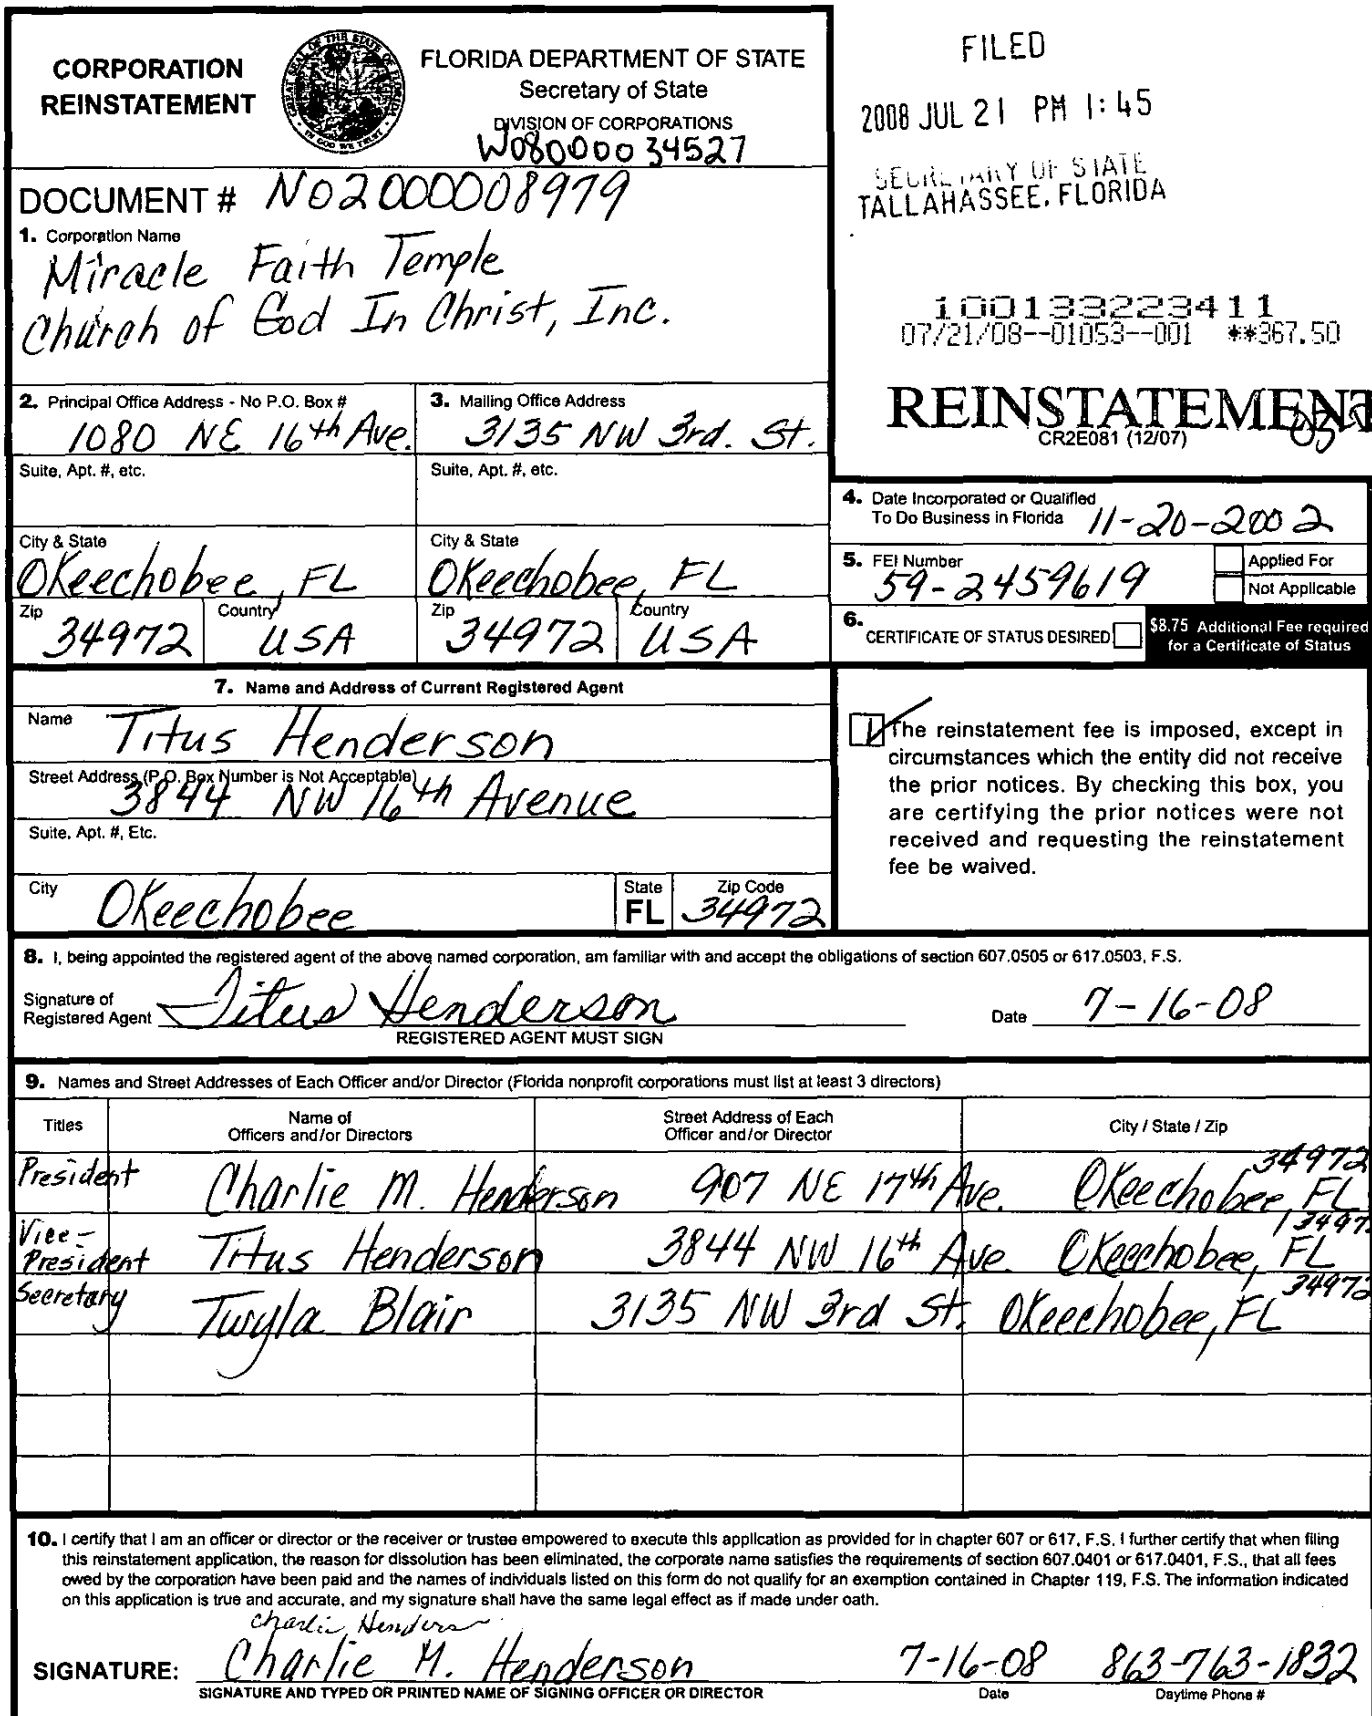 CORPORATION
REINSTATEMENT
FLORIDA DEPARTMENT OF STATE
Secretary of State
DIVISION OF CORPORATIONS
W08000034527
FILED
2008 JUL 21 PM 1:45
SECRETARY OF STATE
TALLAHASSEE, FLORIDA
DOCUMENT # N02000008979
1. Corporation Name
Miracle Faith Temple
Church of God In Christ, Inc.
100133223411
07/21/08--01053--001 **367.50
REINSTATEMENT
CR2E081 (12/07)
2. Principal Office Address - No P.O. Box #
1080 NE 16th Ave.
3. Mailing Office Address
3135 NW 3rd. St.
Suite, Apt. #, etc.
Suite, Apt. #, etc.
City & State
Okeechobee, FL
City & State
Okeechobee, FL
Zip
34972
Country
USA
Zip
34972
Country
USA
4. Date Incorporated or Qualified
To Do Business in Florida 11-20-2002
5. FEI Number
59-2459619
Applied For
Not Applicable
6. CERTIFICATE OF STATUS DESIRED
$8.75 Additional Fee required
for a Certificate of Status
7. Name and Address of Current Registered Agent
Name Titus Henderson
Street Address (P.O. Box Number is Not Acceptable)
3844 NW 16th Avenue
Suite, Apt. #, Etc.
City Okeechobee
State
FL
Zip Code
34972
The reinstatement fee is imposed, except in
circumstances which the entity did not receive
the prior notices. By checking this box, you
are certifying the prior notices were not
received and requesting the reinstatement
fee be waived.
8. I, being appointed the registered agent of the above named corporation, am familiar with and accept the obligations of section 607.0505 or 617.0503, F.S.
Signature of
Registered Agent Titus Henderson
REGISTERED AGENT MUST SIGN
Date 7-16-08
9. Names and Street Addresses of Each Officer and/or Director (Florida nonprofit corporations must list at least 3 directors)
Titles
Name of
Officers and/or Directors
Street Address of Each
Officer and/or Director
City / State / Zip
President Charlie M. Henderson 907 NE 17th Ave. Okeechobee, FL 34972
Vice-
President Titus Henderson 3844 NW 16th Ave. Okeechobee, FL 3497
Secretary Twyla Blair 3135 NW 3rd St. Okeechobee, FL 34972
10. I certify that I am an officer or director or the receiver or trustee empowered to execute this application as provided for in chapter 607 or 617, F.S. I further certify that when filing
this reinstatement application, the reason for dissolution has been eliminated, the corporate name satisfies the requirements of section 607.0401 or 617.0401, F.S., that all fees
owed by the corporation have been paid and the names of individuals listed on this form do not qualify for an exemption contained in Chapter 119, F.S. The information indicated
on this application is true and accurate, and my signature shall have the same legal effect as if made under oath.
Charlie Henders
SIGNATURE: Charlie M. Henderson 7-16-08 863-763-1832
SIGNATURE AND TYPED OR PRINTED NAME OF SIGNING OFFICER OR DIRECTOR
Date
Daytime Phone #